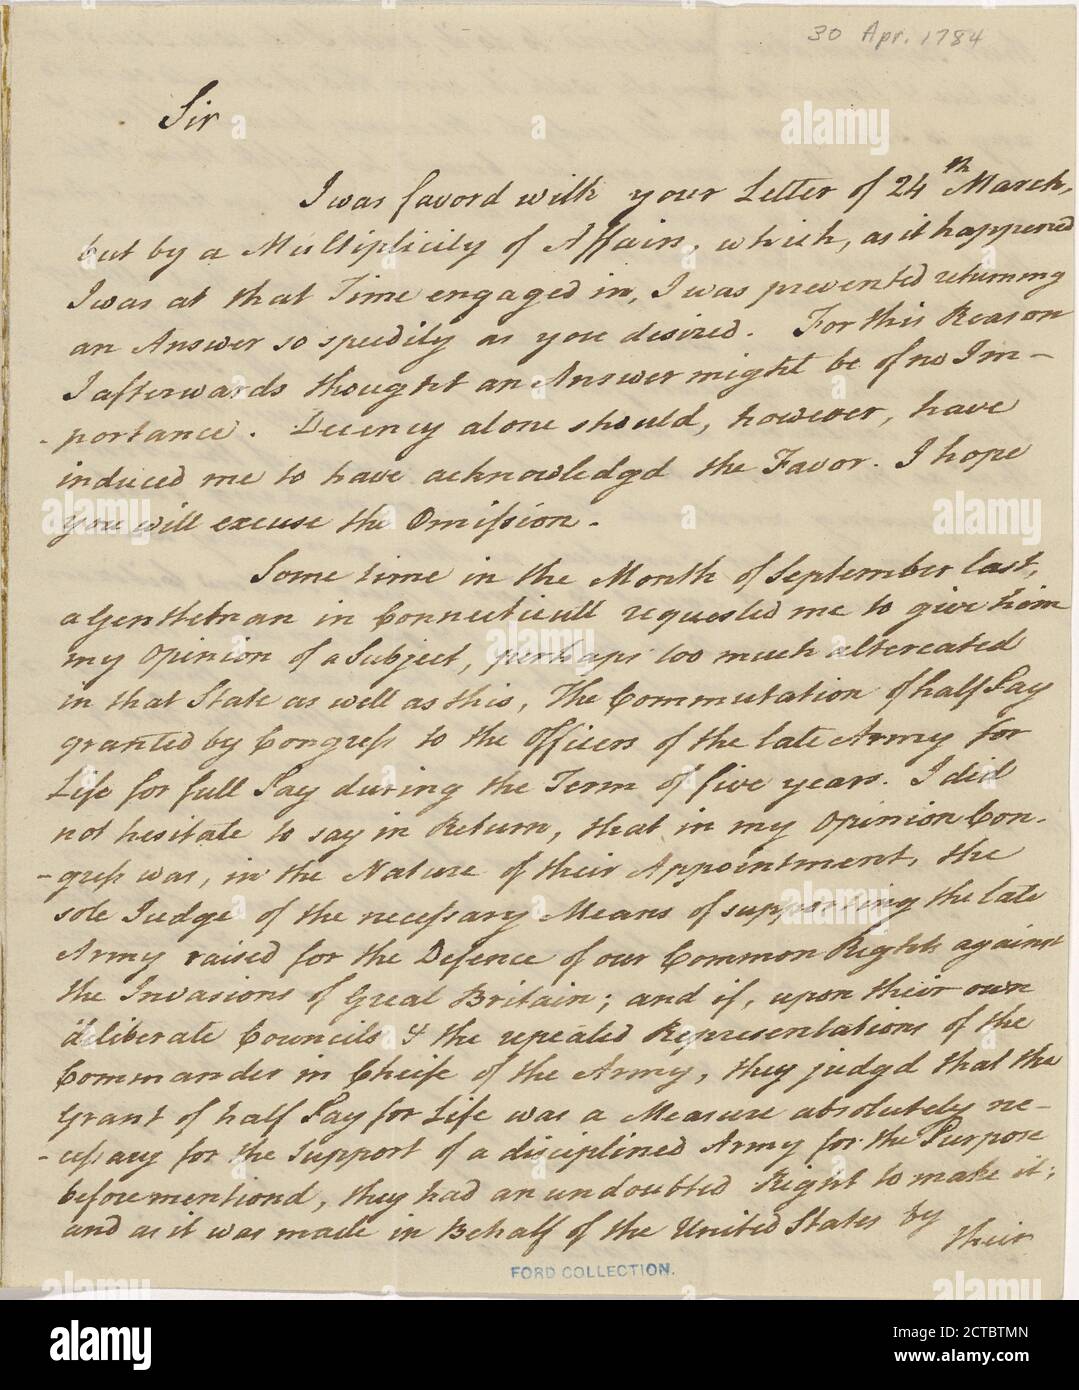 30 Apr. 1784
Sir
I was favord with your Letter of 24th March,
but by a Multiplicity of Affairs, which, as it happened
I was at that Time engaged in, I was prevented returning
an Answer so speedily as you desired. For this Reason
I afterwards thought an Answer might be of no Im-
-portance. Decency alone should, however, have
induced me to have acknowledgd the Favor. I hope
you will excuse the Omission.
Some time in the Month of September last,
a Gentleman in Connecticutt requested me to give him
my Opinion of a Subject, perhaps too much altercated
in that State as well as this, The Commutation of half Pay
granted by Congress to the Officers of the late Army for
Life for full Pay during the Term of five years. I did
not hesitate to say in Return, that in my Opinion Con-
-gress was, in the Nature of their Appointment, the
sole Judge of the necessary Means of supporting the late
Army raised for the Defence of our Common Rights against
the Invasions of Great Britain; and if, upon their own
deliberate Councils & the repeated Representations of the
Commander in Cheife of the Army, they judgd that the
Grant of half Pay for Life was a Measure absolutely ne-
-cessary for the Support of a disciplined Army for the Purpose
before mentiond, they had an undoubted Right to make it;
and as it was made in Behalf of the United States by
their
FORD COLLECTION.
alamy
Image ID: 2CTBTMN
www.alamy.com